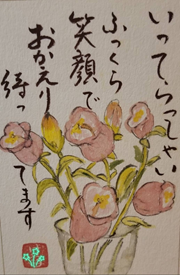 いってらっしゃい
ふっくら
笑顔で
おかえり
待っ
てます